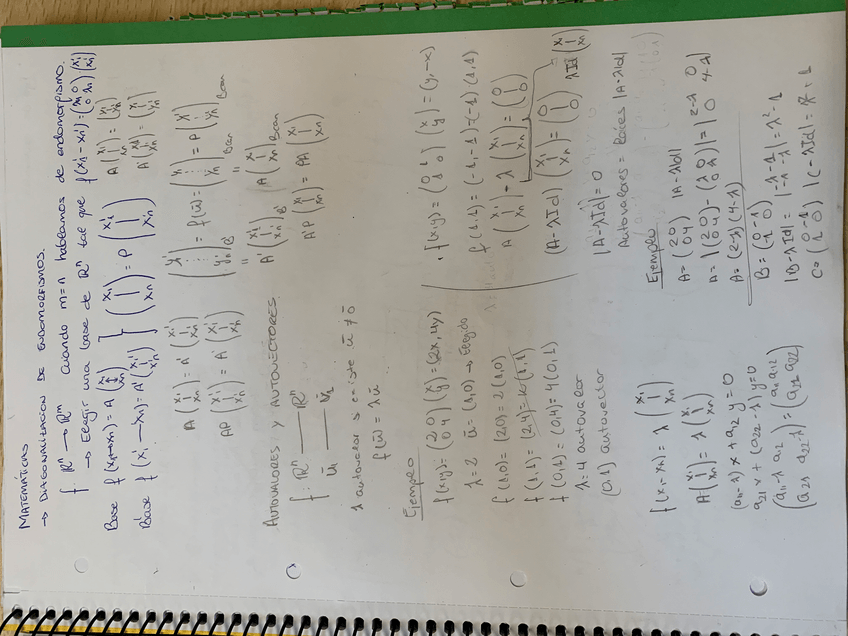 MATEMÁTICAS
→ DIAGONALIZACIÓN DE ENDOMORFISMOS.
f: ℝⁿ → ℝᵐ cuando m=n hablamos de endomorfismo.
→ Elegir una base de ℝⁿ tal que f(x₁'-xₙ')=(λ₁ 0 / 0 λₙ)(x₁' / xₙ')
Base f(x₁→xₙ)=A(x₁ | xₙ)
Base' f(x₁'—xₙ')=A'(x₁' | xₙ')
(x₁ | xₙ)=P(x₁' | xₙ')
A(x₁ | xₙ)=A'(x₁' | xₙ')
AP(x₁' | xₙ')=A'(x₁' | xₙ')
A'P(x₁ | xₙ)=PA(x₁ | xₙ)
AUTOVALORES Y AUTOVECTORES
f: ℝⁿ —— ℝⁿ
λ autovalor s existe ū ≠ 0̄
f(ū)=λū
Ejemplo
f(x,y)=(2,0 / 0 4)(x / y)=(2x,4y)
λ=2 ū=(1,0) → Elegido
f(1,0)=(2,0)=2(1,0)
f(0,1)=(0,4)=4(0,1)
λ=4 autovalor
(0,1) autovector
f(x,y)=(0 1 / -1 0)(x / y)=(y,-x)
A(x₁ | xₙ)-λ(x₁ | xₙ)=(0 | 0)
(A-λId)(x₁ | xₙ)=(0 | 0)
|A-λId|=0
Autovalores = Raíces |A-λId|
f(x₁-xₙ)=λ(x₁ | xₙ)
A(x₁ | xₙ)=λ(x₁ | xₙ)
(a₁₁-λ)x+a₁₂y=0
a₂₁x+(a₂₂-λ)y=0
(a₁₁-λ a₁₂ / a₂₁ a₂₂-λ)=(a₁₁ a₁₂ / a₂₁ a₂₂)
Ejemplo
A=(2 0 / 0 4) |A-λId|
A=|(2 0 / 0 4)-(λ 0 / 0 λ)|=|2-λ 0 / 0 4-λ|
A=(2-λ)(4-λ)
B=(0 -1 / -1 0)
|B-λId|=|-λ -1 / -1 -λ|=λ²-1
C=(0 -1 / 1 0) |C-λId|=λ²+1